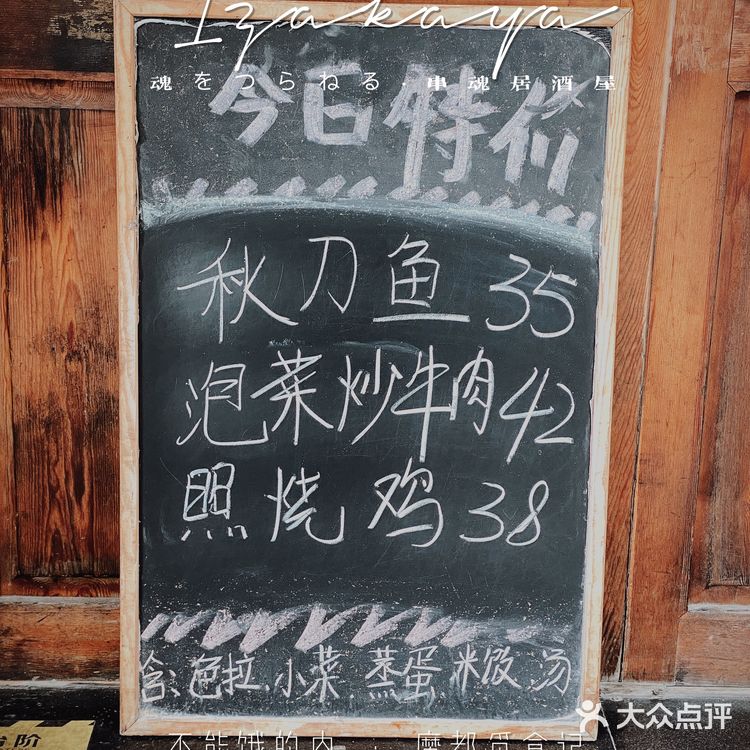 Izakaya
魂をつらねる 串魂居酒屋
今日特价
秋刀鱼 35
泡菜炒牛肉 42
照烧鸡 38
含:色拉.小菜.蒸蛋.米饭.汤
大众点评
台阶